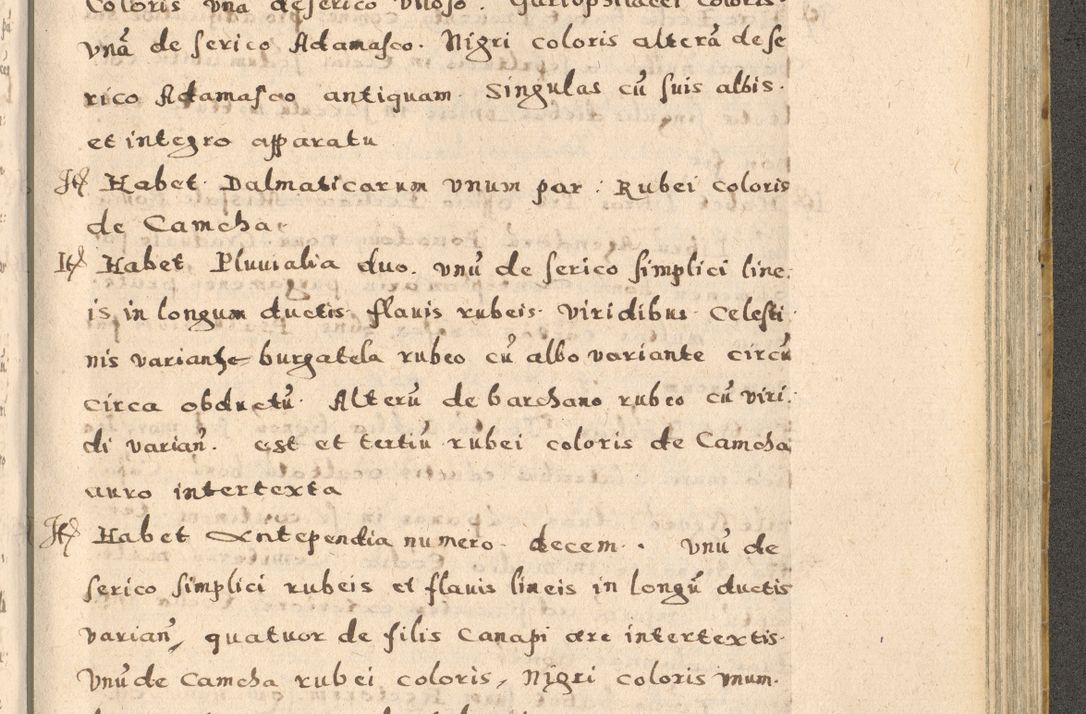 Coloris una de serico viloso.
vnã de serico Adamasco. Nigri coloris alterã dese
rico Adamasco antiquam. Singulas cũ suis albis.
et integro apparatu
It Habet Dalmaticarum vnum par: Rubei coloris
de Camcha.
It Habet Pluuialia duo. vnũ de serico simplici line
is in longum ductis flauis rubeis. viridibus. Celesti
nis variante burgatela rubeo cũ albo variante circũ
circa obductũ. Alterũ de barchano rubeo cũ viri.
di varian. est et tertiũ rubei coloris de Camcha
auro intertexta
It Habet Antependia numero. decem. . vnũ de
serico simplici rubeis et flauis lineis in longũ ductis
varian, quatuor de filis Canapi ære intertextis.
Vnũ de Camcha rubei coloris, Nigri coloris vnum.